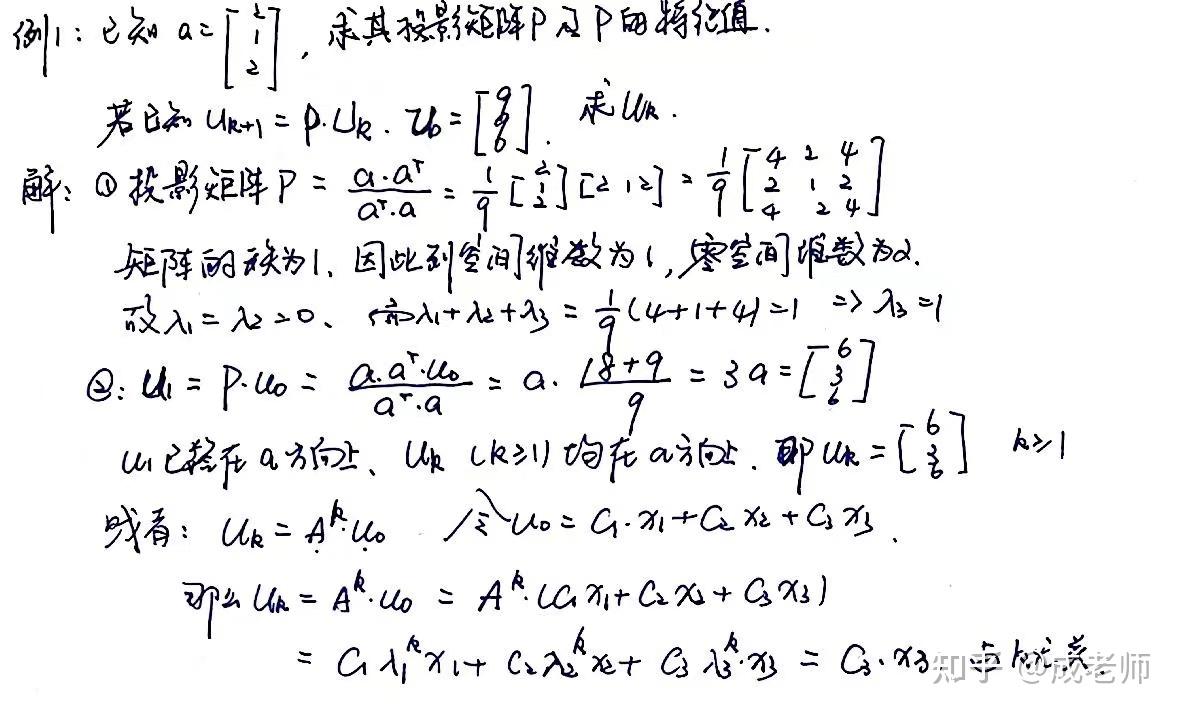 例1：已知 a=[2 1 2]，求其投影矩阵P及P的特征值.
若已知 U_{k+1} = P·U_k. U_0=[9 9 0]. 求U_k.
解：① 投影矩阵 P = a·a^T / a^T·a = 1/9 [2 1 2] [2 1 2] = 1/9 [4 2 4; 2 1 2; 4 2 4]
矩阵的秩为1、因此列空间维数为1，零空间维数为2.
故 λ1=λ2=0、而λ1+λ2+λ3 = 1/9 (4+1+4)=1 => λ3=1
②: u1 = P·u0 = a·a^T·u0 / a^T·a = a· 18+9 / 9 = 3a = [6 3 6]
u1已经在a方向上、U_k (k≥1) 均在a方向上. 即 U_k = [6 3 6] k≥1
或者：U_k = A^k·U_0 令 U_0 = C1·x1+C2 x2+C3 x3.
那么 U_k = A^k·u0 = A^k·(C1 x1+C2 x2+C3 x3)
= C1 λ1^k x1+ C2 λ2^k x2+ C3 λ3^k·x3 = C3·x3.
知乎 @成老师